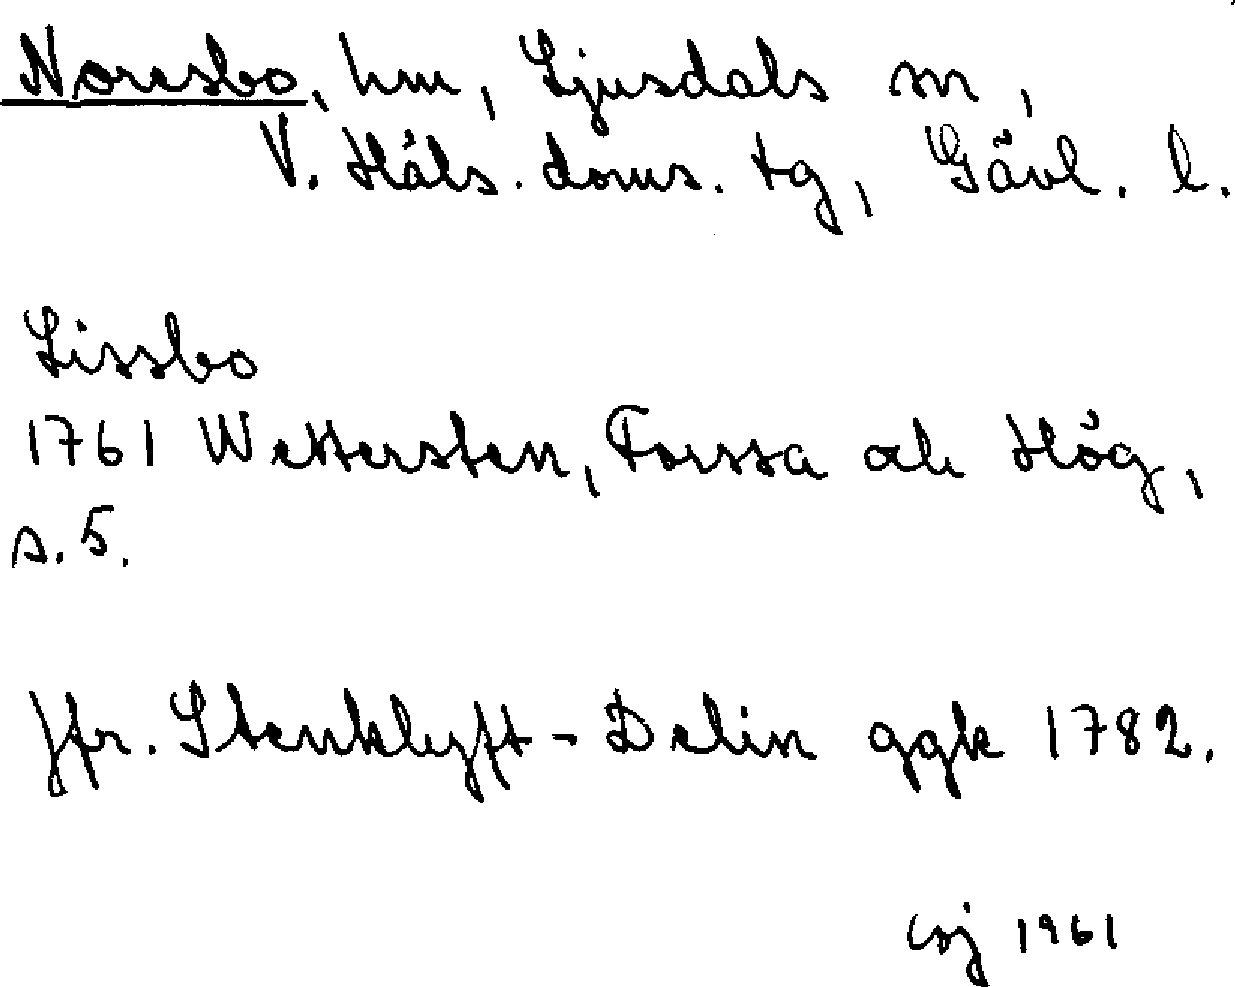 Noresbo, hm, Ljusdals sn,
V. Häls. doms. tg, Gävl. l.
Lissbo
1761 Wettersten, Forssa och Hög,
s. 5.
Jfr. Stenklyft - Delin ggk 1782.
1961